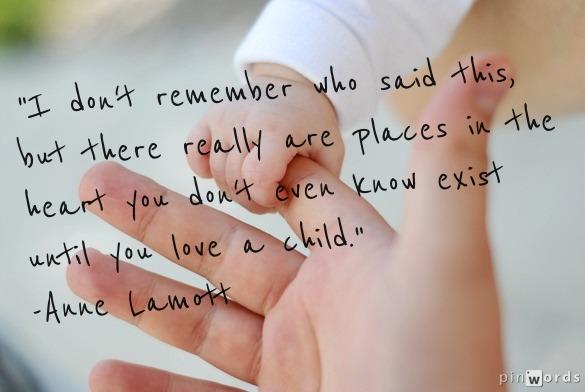 "I don't remember who said this,
but there really are places in the
heart you don't even know exist
until you love a child."
-Anne Lamott
pinwords